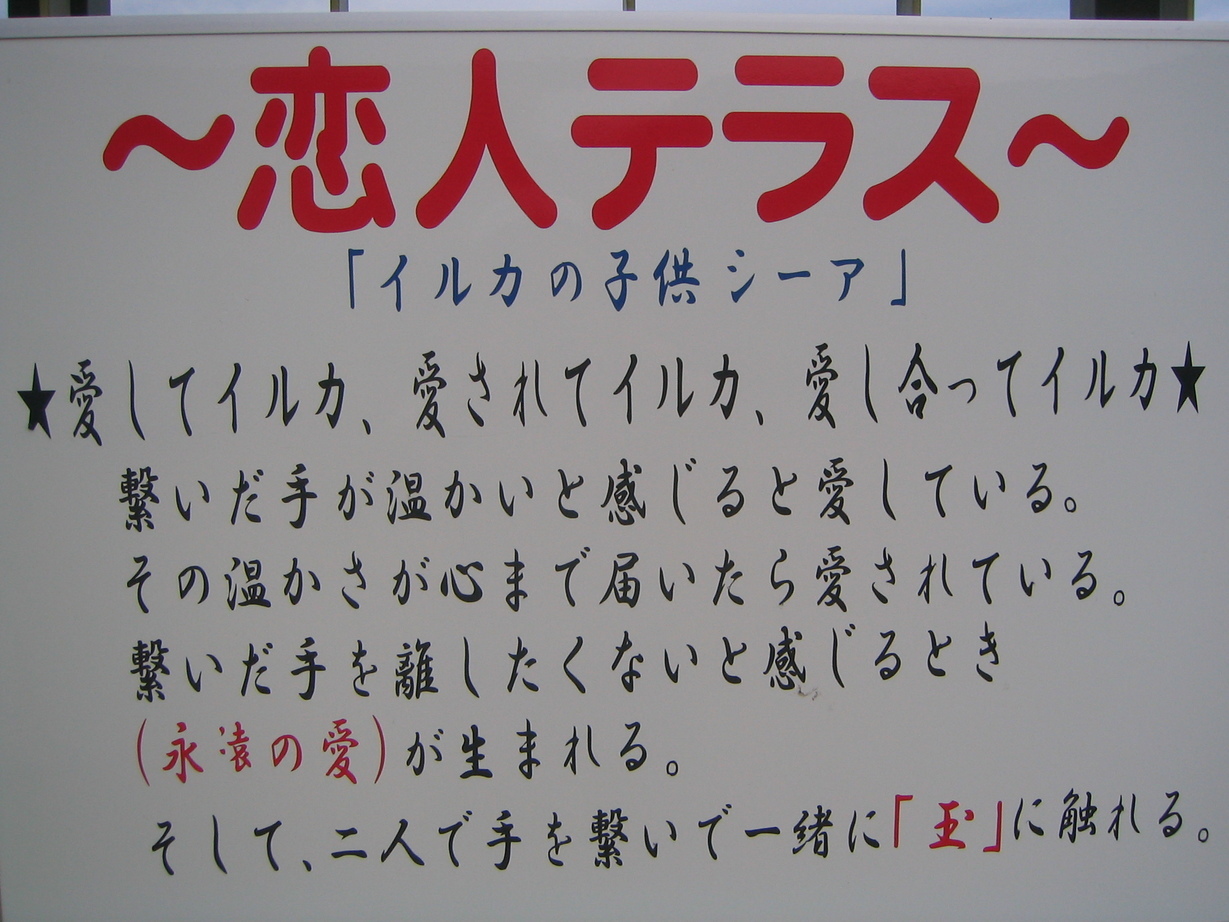 ～恋人テラス～
「イルカの子供シーア」
★愛してイルカ、愛されてイルカ、愛し合ってイルカ★
繋いだ手が温かいと感じると愛している。
その温かさが心まで届いたら愛されている。
繋いだ手を離したくないと感じるとき
(永遠の愛)が生まれる。
そして、二人で手を繋いで一緒に「玉」に触れる。